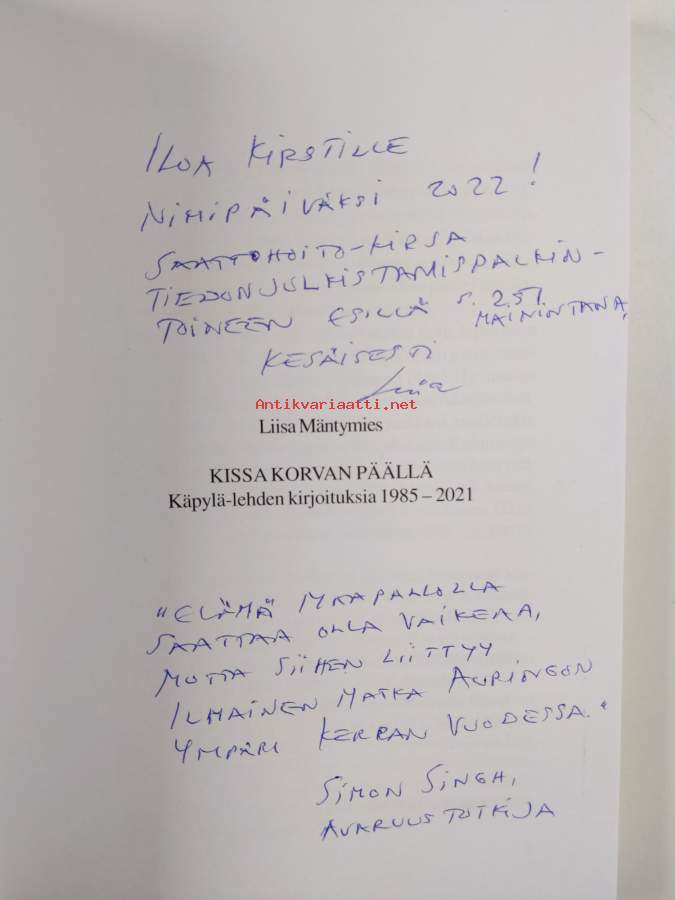 ILOA KIRSTILLE
NIMIPÄIVÄKSI 2022!
SAATTOHOITO-KIRSA
TIEDONJULKISTAMISPALKIN-
TOINEEN ESILLÄ s. 257.
MAININTANA,
KESÄISESTI
Liisa
Antikvariaatti.net
Liisa Mäntymies
KISSA KORVAN PÄÄLLÄ
Käpylä-lehden kirjoituksia 1985 – 2021
"ELÄMÄ MAAPALLOLLA
SAATTAA OLLA VAIKEAA,
MUTTA SIIHEN LIITTYY
ILMAINEN MATKA AURINGON
YMPÄRI KERRAN VUODESSA."
SIMON SINGH,
AVARUUSTUTKIJA